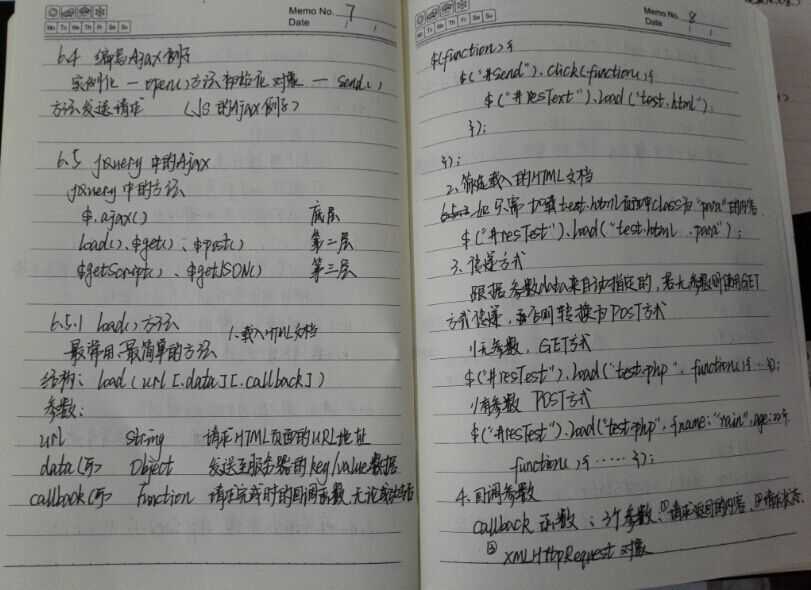 Memo No. 7
Mo Tu We Th Fr Sa Su
Date / /
6.4 编写Ajax例子
实例化 — open()方法初始化对象 — send()
方法发送请求 (JS的Ajax例子)
6.5 jQuery 中的Ajax
jQuery 中的方法
$.ajax() 底层
load()、$get()、$post() 第二层
$getScript()、$getJSON() 第三层
6.5.1 load()方法 1.载入HTML文档
最常用、最简单的方法
结构: load(url [.data][.callback])
参数:
url String 请求HTML页面的URL地址
data(可) Object 发送至服务器的key/value数据
callback(可) function 请求完成时的回调函数,无论成功失败
Memo No. 8
Mo Tu We Th Fr Sa Su
Date / /
$(function(){
$("#send").click(function(){
$("#resText").load("test.html");
});
});
2.筛选载入的HTML文档
只需加载test.html页面中class为"para"的内容
$("#resTest").load("test.html .para");
3.传递方式
根据参数data来自动指定的,若无参数则使用GET
方式传递,否则转换为POST方式
//无参数,GET方式
$("#resTest").load("test.php", function(){ … });
//有参数 POST方式
$("#resTest").load("test.php", {name:"rain",age:22},
function(){ …… });
4.回调参数
callback 函数:3个参数、①请求返回的内容、②请求状态、
③ XMLHttpRequest 对象